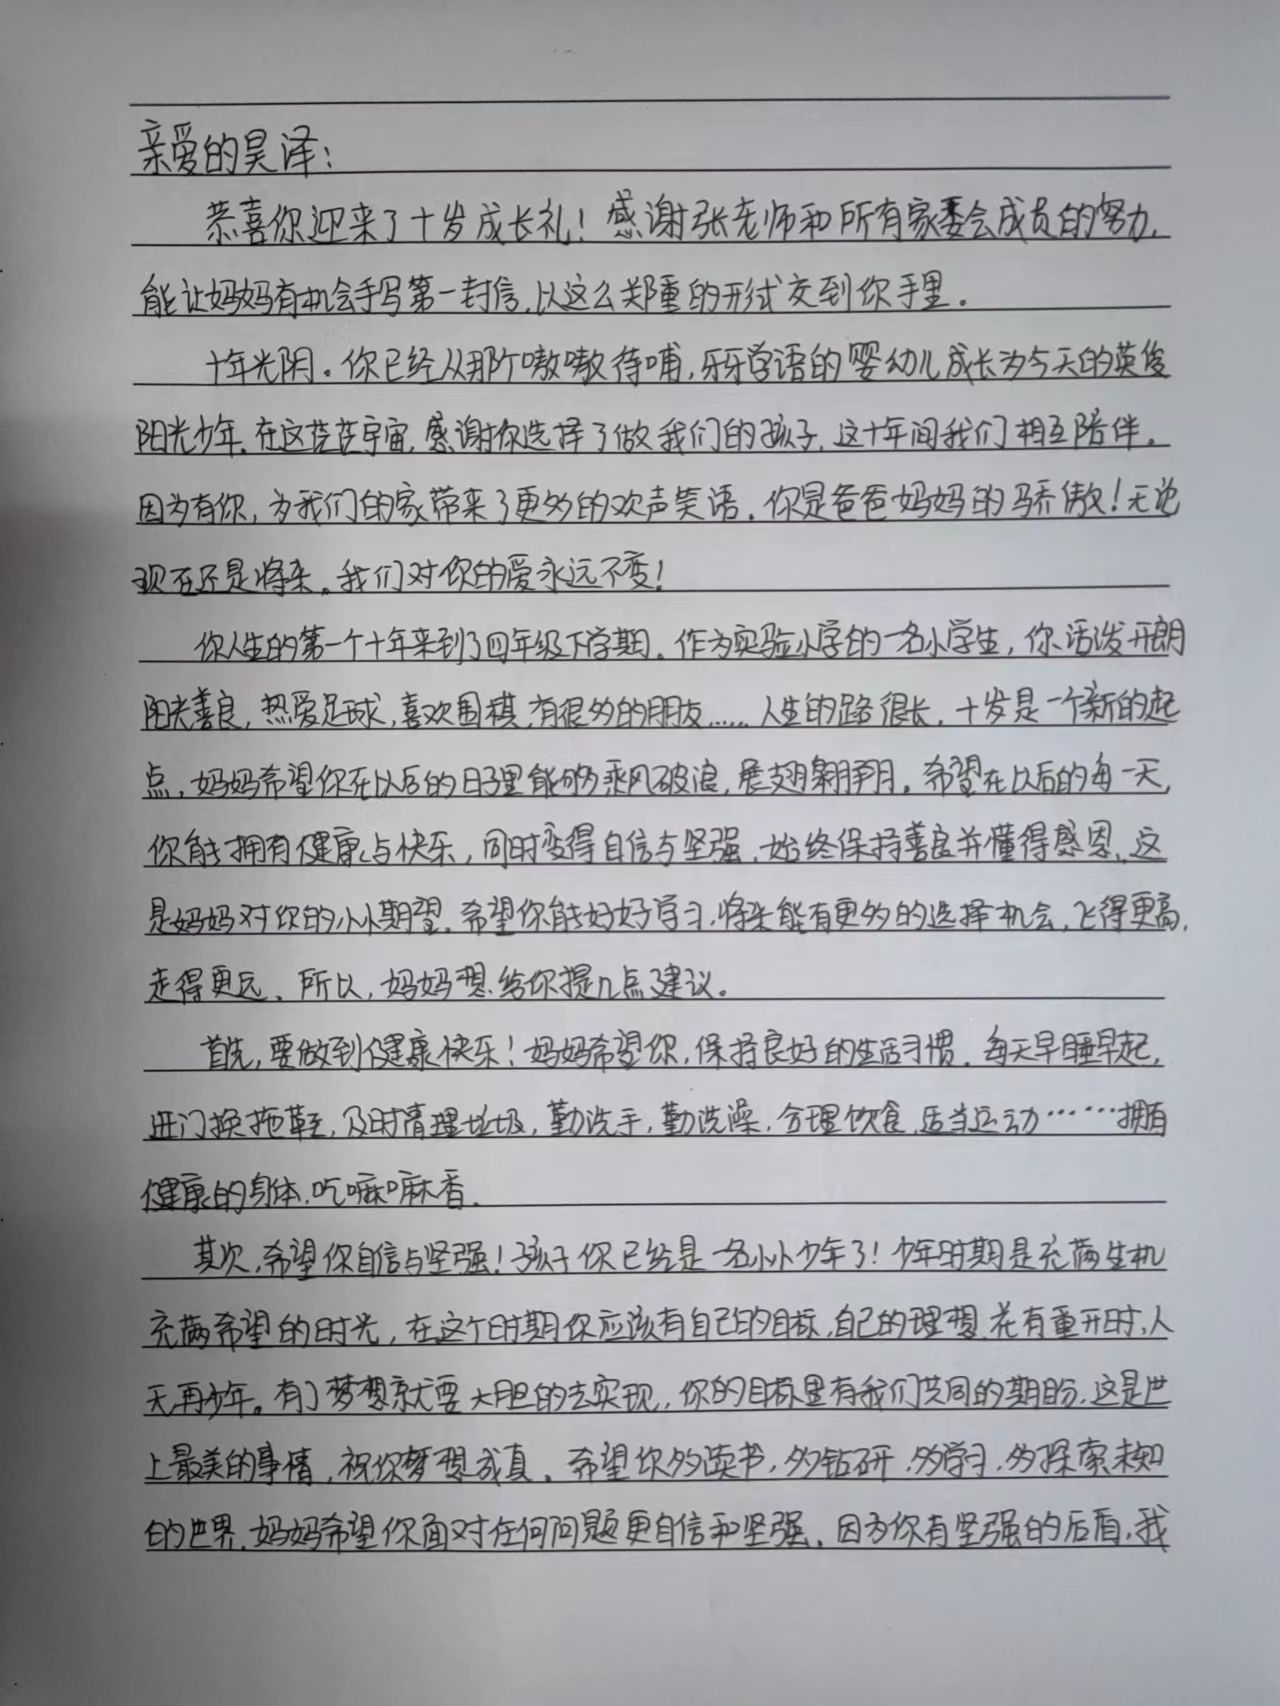 亲爱的昊泽：
恭喜你迎来了十岁成长礼！感谢张老师和所有家委会成员的努力，
能让妈妈有机会手写第一封信，以这么郑重的形式交到你手里。
十年光阴。你已经从那个嗷嗷待哺，牙牙学语的婴幼儿成长为今天的英俊
阳光少年。在这茫茫宇宙，感谢你选择了做我们的孩子，这十年间我们相互陪伴。
因为有你，为我们的家带来了更多的欢声笑语。你是爸爸妈妈的骄傲！无论
现在还是将来。我们对你的爱永远不变！
你人生的第一个十年来到了四年级下学期。作为实验小学的一名小学生，你活泼开朗
阳光善良，热爱足球，喜欢围棋，有很多的朋友……人生的路很长，十岁是一个新的起
点，妈妈希望你在以后的日子里能够乘风破浪，展翅翱翔。希望在以后的每一天，
你能拥有健康与快乐，同时变得自信与坚强，始终保持善良并懂得感恩、这
是妈妈对你的小小期望。希望你能好好学习，将来能有更多的选择机会，飞得更高，
走得更远、所以，妈妈想给你提几点建议。
首先，要做到健康快乐！妈妈希望你，保持良好的生活习惯。每天早睡早起，
进门换拖鞋，及时清理垃圾，勤洗手，勤洗澡，合理饮食，适当运动……拥有
健康的身体，吃嘛嘛香。
其次，希望你自信与坚强！孩子你已经是一名小小少年了！少年时期是充满生机
充满希望的时光，在这个时期你应该有自己的目标，自己的理想。花有重开时，人
无再少年。有了梦想就要大胆的去实现，你的目标里有我们共同的期盼，这是世
上最美的事情，祝你梦想成真。希望你多读书，多钻研，多学习，多探索未知
的世界。妈妈希望你面对任何问题更自信和坚强。因为你有坚强的后盾，我